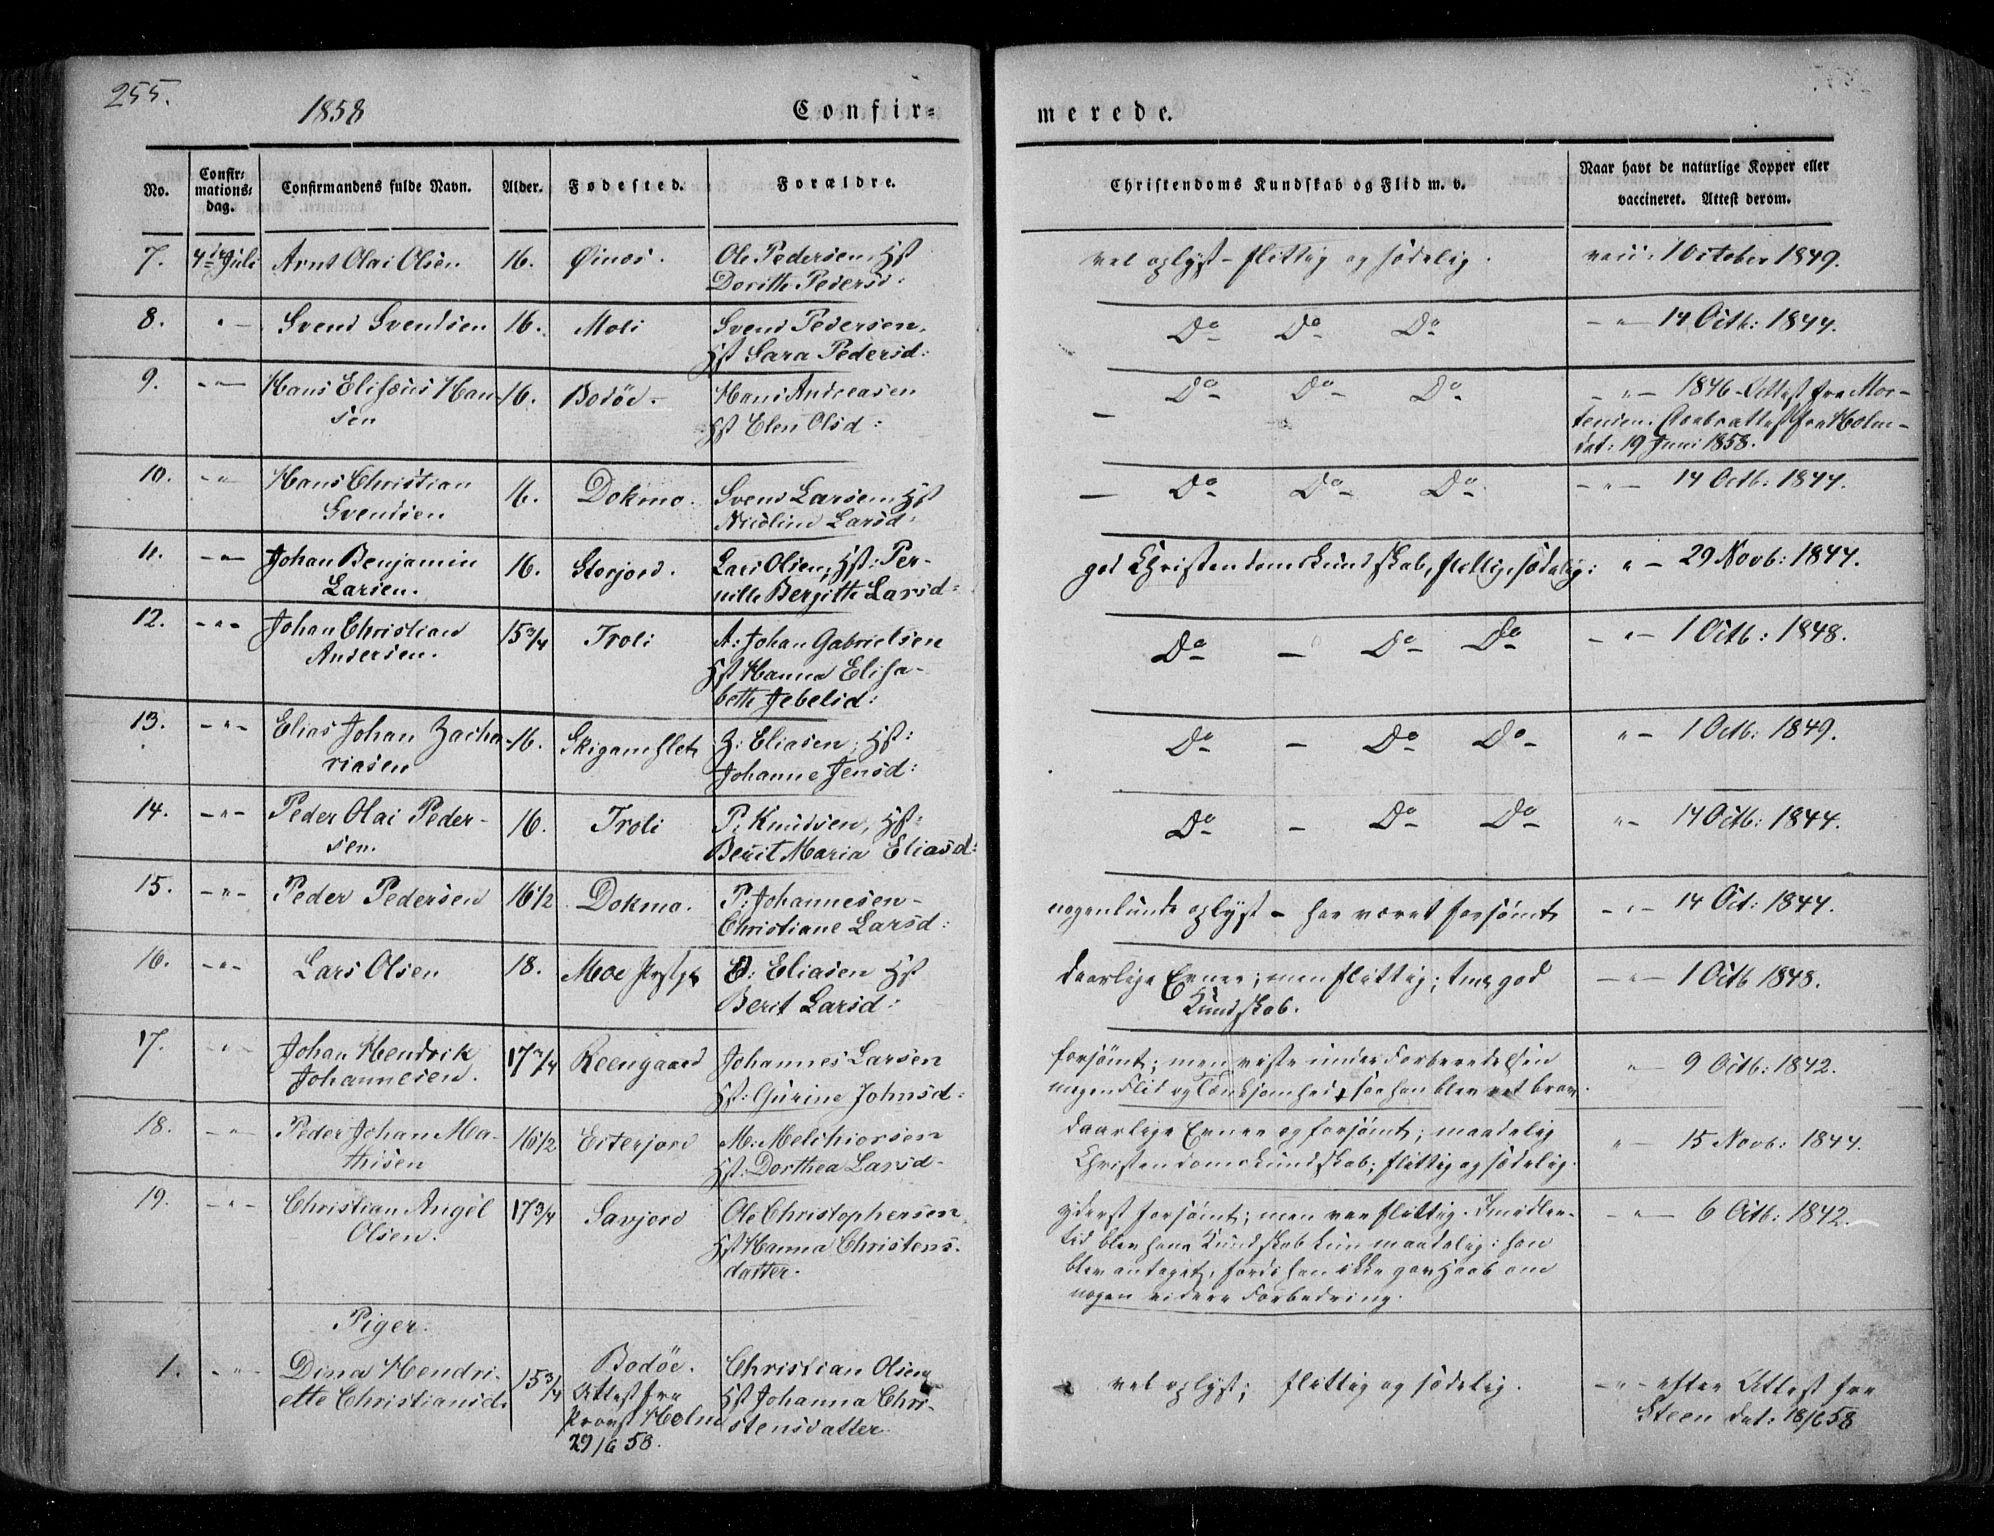 255.
1858
Confir=
merede.
No.
Confir=
mations=
dag.
Confirmandens fulde Navn.
Alder.
Fødested.
Forældre.
Christendoms Kundskab og Flid m. v.
Naar havt de naturlige Kopper eller
vaccineret. Attest derom.
7. 4de Juli Arnt Olai Olsen 16. Øines. Ole Pedersen, Hst
Dorithe Pedersd:
vel oplyst - flittig og sædelig. vacc: 1 October 1849.
8. " Svend Svendsen 16. Moli Svend Pedersen,
Hst Sara Pedersd:
Do Do Do - " - 14 Octb: 1844.
9. - " - Hans Elisæus Han-
sen 16. Bodøe. Hans Andreasen
Hst Elen Olsd:
- Do Do Do - " - 1846 - Attest fra Mor-
tensen. Holm-
dat: 19 Juni 1858.
10. - " - Hans Christian
Svendsen 16. Dokmo. Svend Larsen, Hst
Nicoline Larsd:
- Do Do Do - " - 14 Octb. 1844.
11. - " - Johan Benjamin
Larsen. 16. Storjord. Lars Olsen, Hst: Per-
nille Bergitte Larsd:
god Christendomskundskab, flittig, sædelig: " - 29 Novb: 1844.
12. - " - Johan Christian
Andersen. 15 3/4 Troli A: Johan Gabrielsen
Hst Hanna Elisa-
beth Jebelsd:
Do - Do Do - " - 1 Octb: 1848.
13. - " - Elias Johan Zacha-
riasen 16. Skigamslet Z: Eliasen, Hst:
Johanne Jensd:
Do - Do Do " - 1 Octb: 1849.
14. - " - Peder Olai Peder-
sen. 16. Troli P: Knudsen, Hst:
Berit Maria Eliasd:
Do - Do Do " - 14 Octb: 1844.
15. - " - Peder Pedersen 16 1/2 Dokmo. P: Johannesen -
Christiane Larsd:
nogenlunde oplyst - har været forsømt - " - 14 Oct: 1844.
16. - " - Lars Olsen 18. Moe Præstgj O: Eliasen Hst
Berit Larsd:
daarlige Evner; men flittig; god
Kundskab. - " - 1 Octb 1848.
17. - " - Johan Hendrik
Johannesen. 17 3/4 Reengaard Johannes Larsen
Hst: Gurine Johnsd:
forsømt; men viste under Forberedelsen
megen Flid og Lænksomhed, saa han blev ret brav. " - 9 Octb: 1842.
18. - " - Peder Johan Ma-
thisen 16 1/2 Eiterjord M: Melchiorsen
Hst: Dorthea Larsd-
daarlige Evner og forsømt; maadelig
Christendomskundskab; flittig og sædelig. " - 15 Novb: 1844.
19. - " - Christian Angel
Olsen. 17 3/4 Savjord Ole Christophersen
Hst Hanna Christens-
datter.
yderst forsømt; men var flittig. Imidler-
tid blev hans Kundskab kun maadelig: han
blev antaget, fordi han ikke gav Haab om
nogen videre Forbedring. - " - 6 Octb: 1842.
Piger.
1. - " - Dina Hendri-
ette Christiansd: 15 3/4 Bodøe.
Attest fra
Provst Holm
29/6 58. Christian Olsen
Hst Johanna Chri-
stensdatter.
vel oplyst; flittig og sædelig. - " - efter Attest fra
Steen dat: 18/6 58